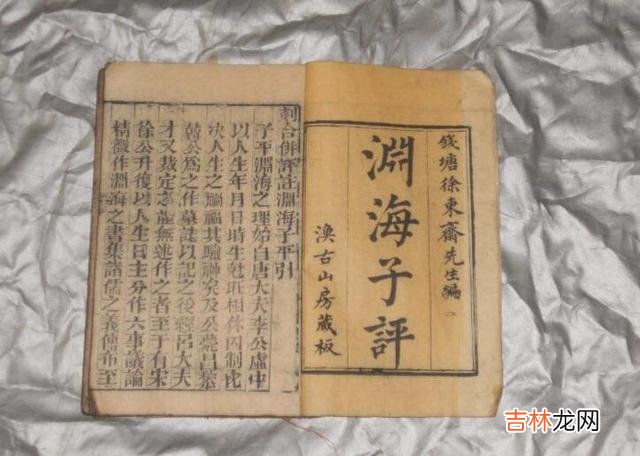 錢塘徐東齋先生編
淵海子評
古山房藏板
刻合併評註淵海子平引
子平淵海之理始自唐大夫李公虛中
以人生年月日時生尅旺相休囚制化
決人生之禍福其驗神矣及公薨昌黎
韓公為之作墓誌以記之後經呂大夫
才又裁定之並無述作之者至于有宋
徐公升復以人生日主分作六事議論
精微作淵海之書集諸儒之義傳布至
吉林龙网